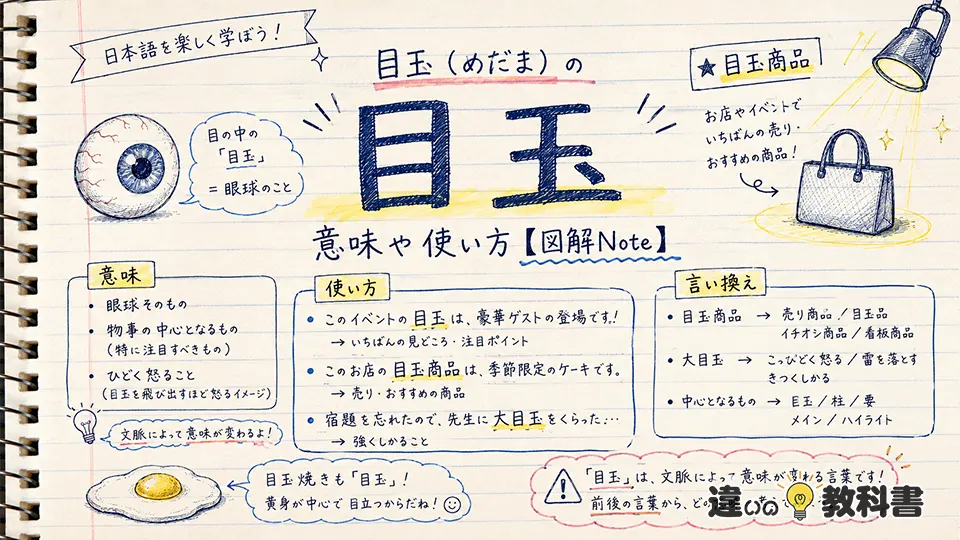 日本語を楽しく学ぼう!
目玉(めだま)の
目玉
意味や使い方【図解Note】
目の中の
「目玉」
=眼球のこと
★目玉商品
お店やイベントで
いちばんの売り・
おすすめの商品!
意味
• 眼球そのもの
• 物事の中心となるもの
(特に注目すべきもの)
• ひどく怒ること
(目玉を飛び出すほど怒るイメージ)
文脈によって意味が変わるよ!
使い方
• このイベントの目玉は、豪華ゲストの登場です!
→ いちばんの見どころ・注目ポイント
• このお店の目玉商品は、季節限定のケーキです。
→ 売り・おすすめの商品
• 宿題を忘れたので、先生に大目玉をくらった…
→ 強くしかること
言い換え
• 目玉商品 → 売り商品/目玉品
イチオシ商品/看板商品
• 大目玉 → こっぴどく怒る/雷を落とす
きつくしかる
• 中心となるもの → 目玉/柱/要
メイン/ハイライト
目玉焼きも「目玉」!
黄身が中心で目立つからだね!
「目玉」は、文脈によって意味が変わる言葉です!
前後の言葉から、ど
違いの教科書